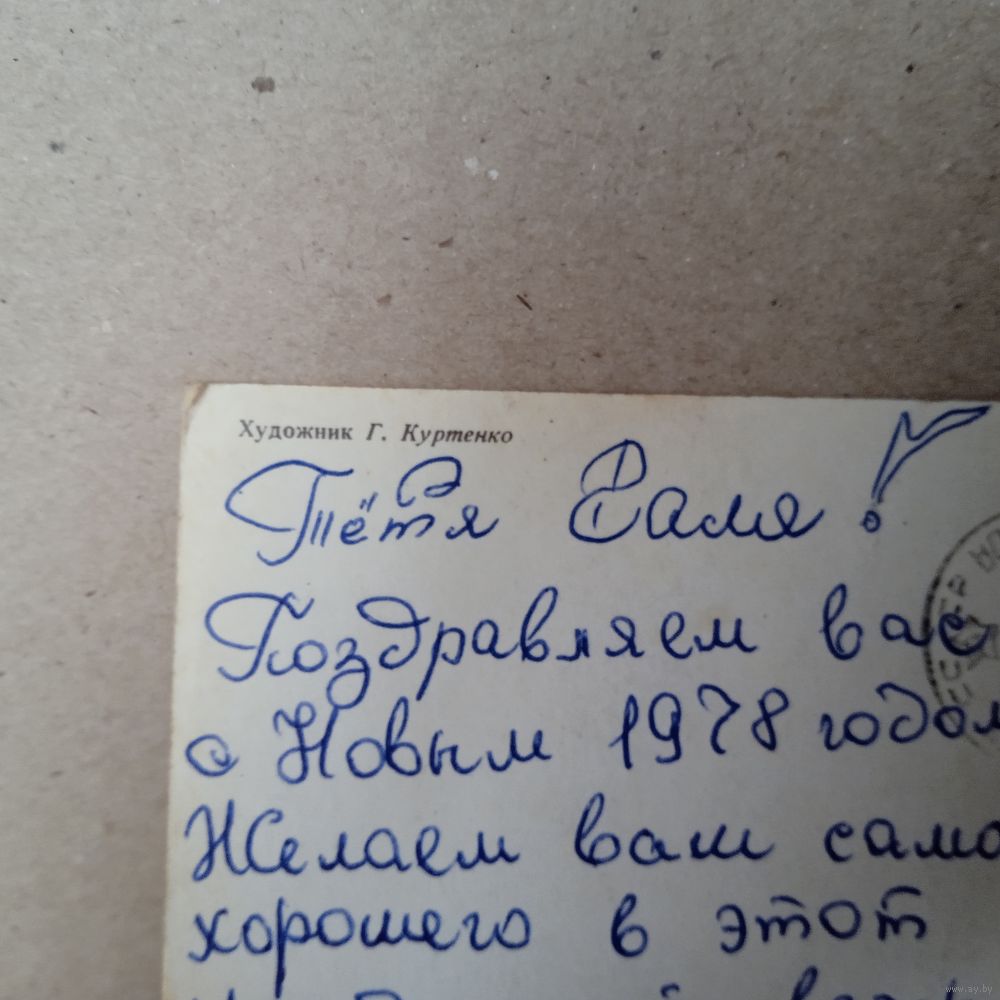 Художник Г. Куртенко
Тётя Валя!
Поздравляем вас
с Новым 1978 годом
Желаем вам само
хорошего в этот
www.ay.by